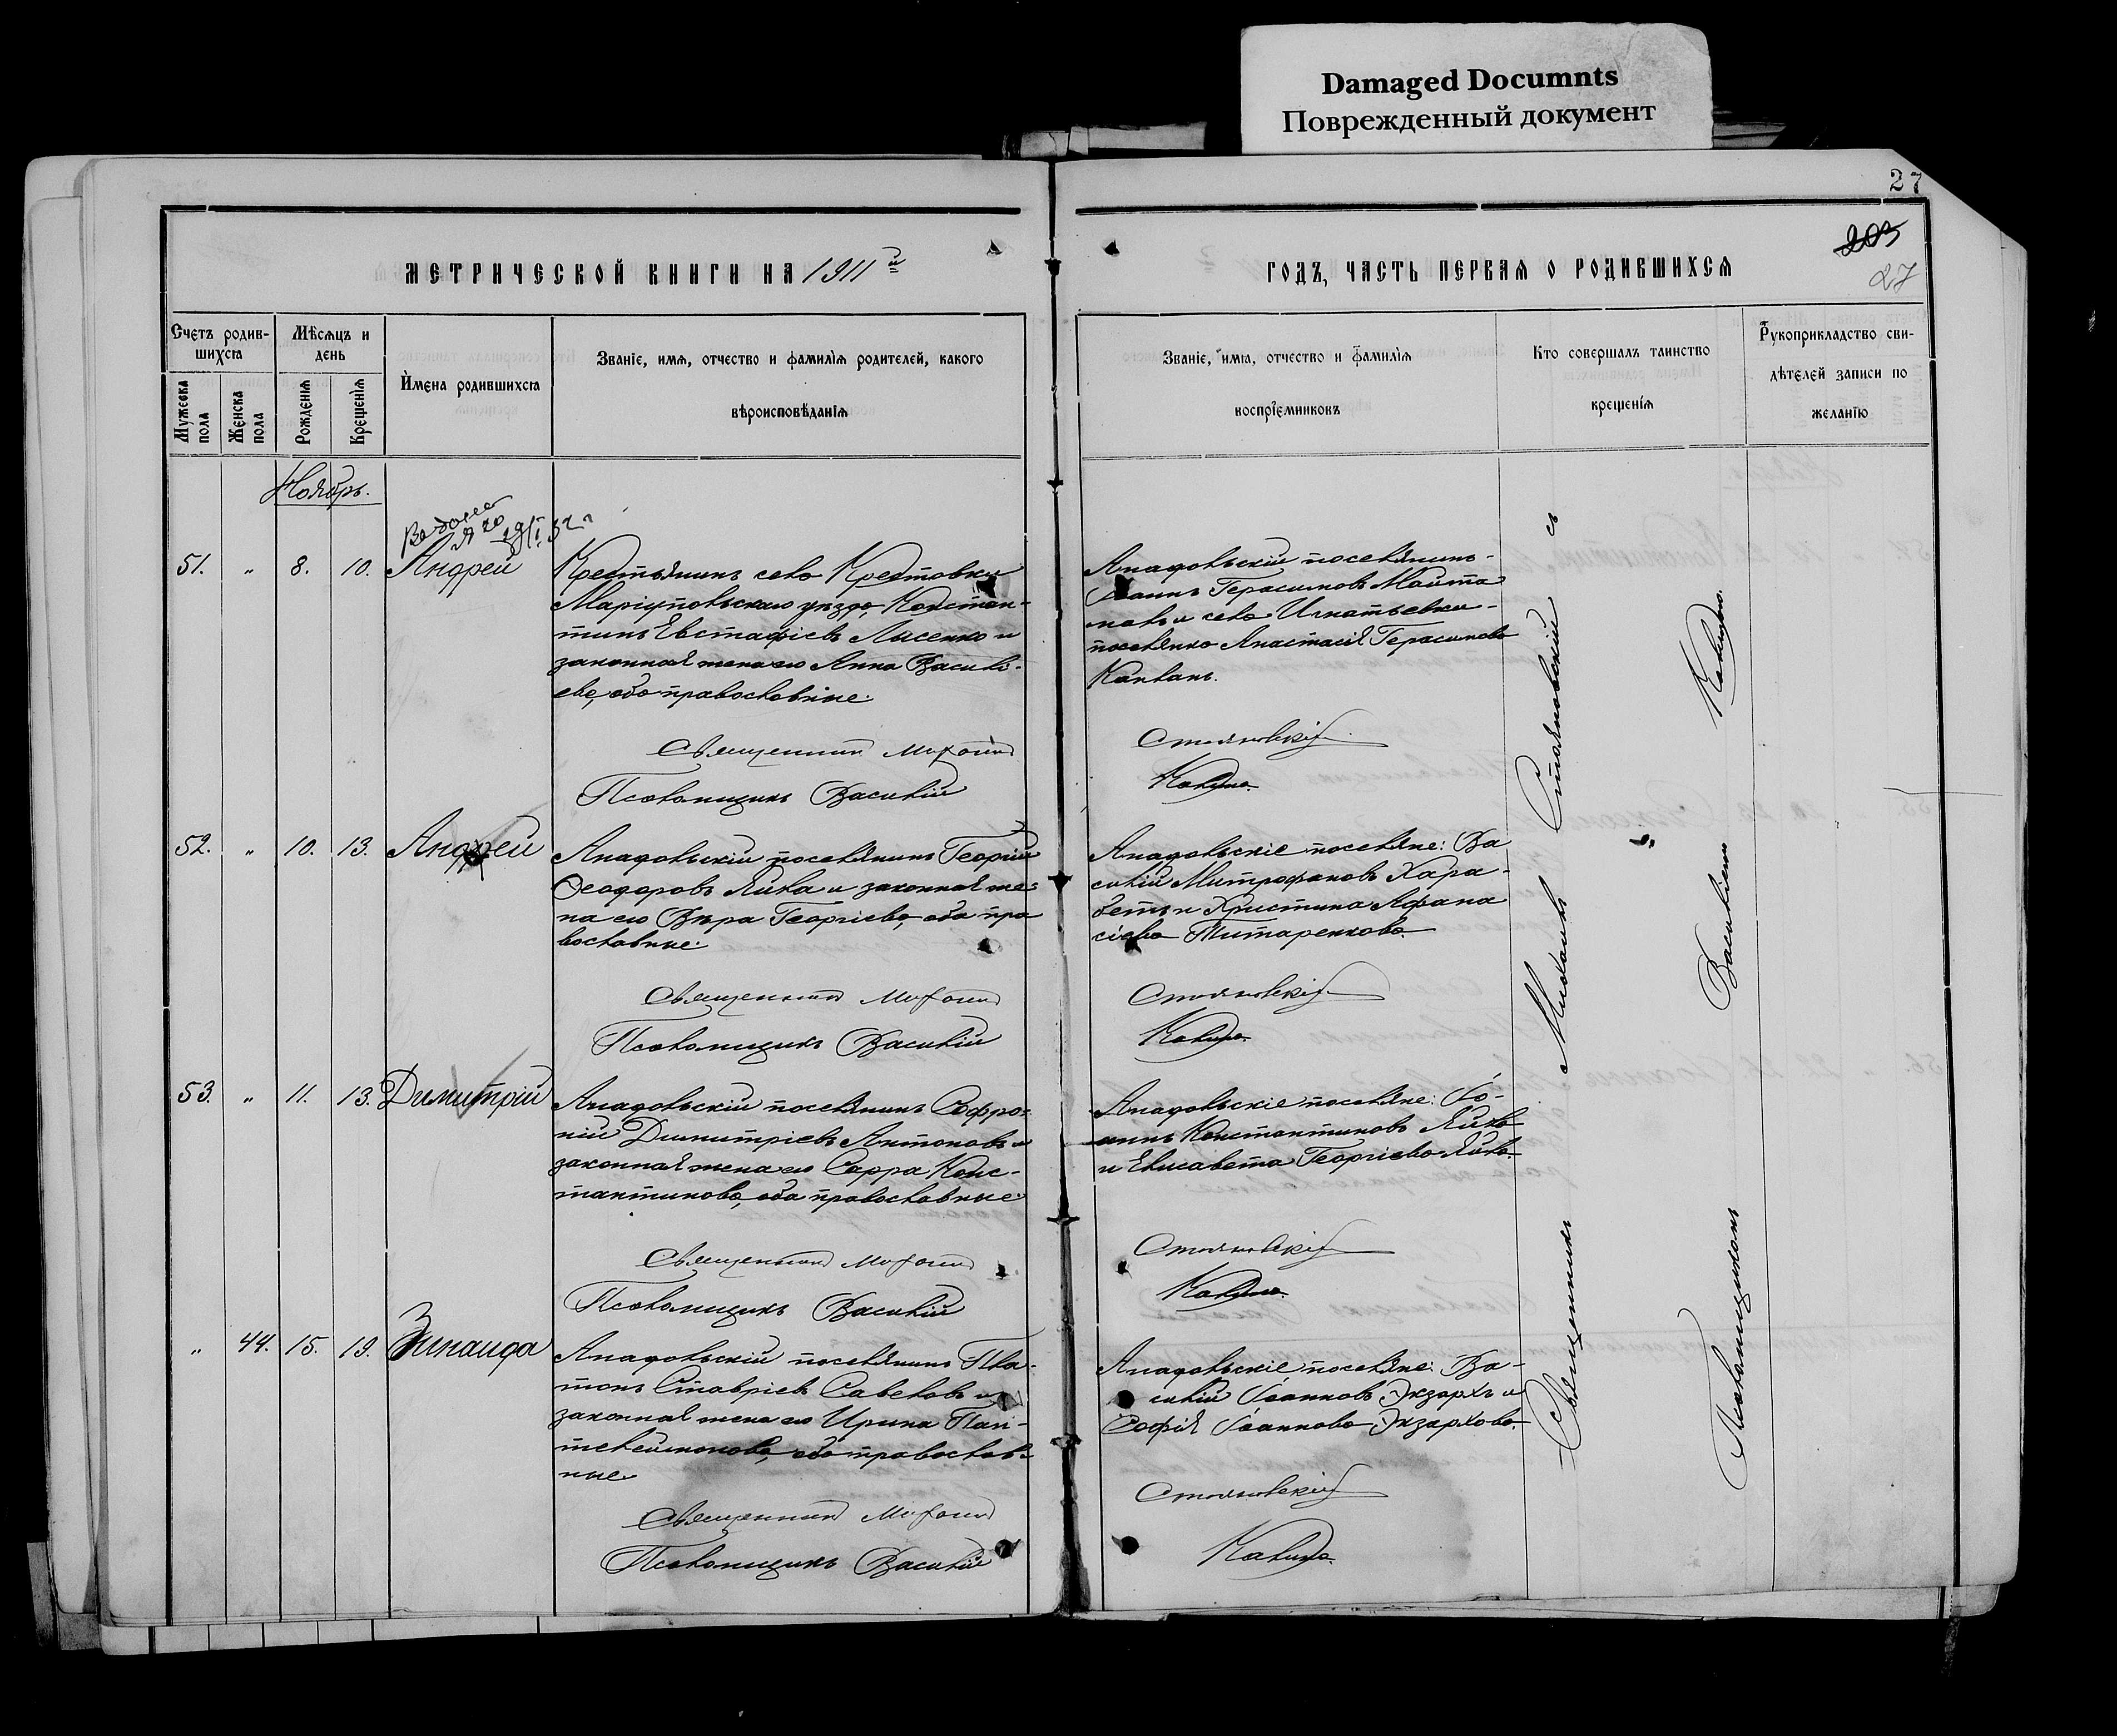 Damaged Documnts
Поврежденный документ
27
203
27
МЕТРИЧЕСКОЙ КНИГИ НА 1911й
ГОДЪ, ЧАСТЬ ПЕРВАЯ О РОДИВШИХСЯ
Счетъ родив-
шихся
Мужеска
пола
Женска
пола
Мѣсяцъ и
день
Рожденія
Крещенія
Имена родившихся
Званіе, имя, отчество и фамилія родителей, какого
вѣроисповѣданія
Званіе, имя, отчество и фамилія
воспріемниковъ
Кто совершалъ таинство
крещенія
Рукоприкладство сви-
дѣтелей записи по
желанію
Ноябрь.
51. " 8. 10. Андрей
Крестьянинъ села Крестовки
Маріупольскаго уѣзда, Констан-
тинъ Евстафіевъ Лысенко и
законная жена его Анна Василь-
ева, оба православные.
Священникъ
Псаломщикъ Василій
Анадольскій поселянинъ
Іоаннъ Герасимовъ
и села Игнатьевки
поселянка Анастасія Герасимова
Стояновскій
52. " 10. 13. Андрей
Анадольскій поселянинъ Георгій
Ѳеодоровъ Яйла и законная же-
на его Вѣра Георгіева, оба пра
вославные.
Священникъ
Псаломщикъ Василій
Анадольскіе поселяне: Ва
силій Митрофановъ Хара-
бетъ и Христина Афана
сіева Титаренкова.
Стояновскій
53. " 11. 13. Димитрій
Анадольскій поселянинъ Софро-
ній Димитріевъ Антоновъ и
законная жена его Сарра Конс-
тантинова, оба православные.
Священникъ
Псаломщикъ Василій
Анадольскіе поселяне: Іо-
аннъ Константиновъ Яйла
и Елисавета Георгіева Яйла.
Стояновскій
" 44. 15. 19. Зинаида
Анадольскій поселянинъ Пла-
тонъ Ставріевъ Савеловъ и
законная жена его Ирина Пан-
телеимонова, оба православ-
ные.
Священникъ
Псаломщикъ Василій
Анадольскіе поселяне: Ва-
силій Іоанновъ Экзархъ и
Софія Іоаннова Экзархова.
Стояновскій
Священникъ Михаилъ Стояновскій съ
Псаломщикомъ Василіемъ